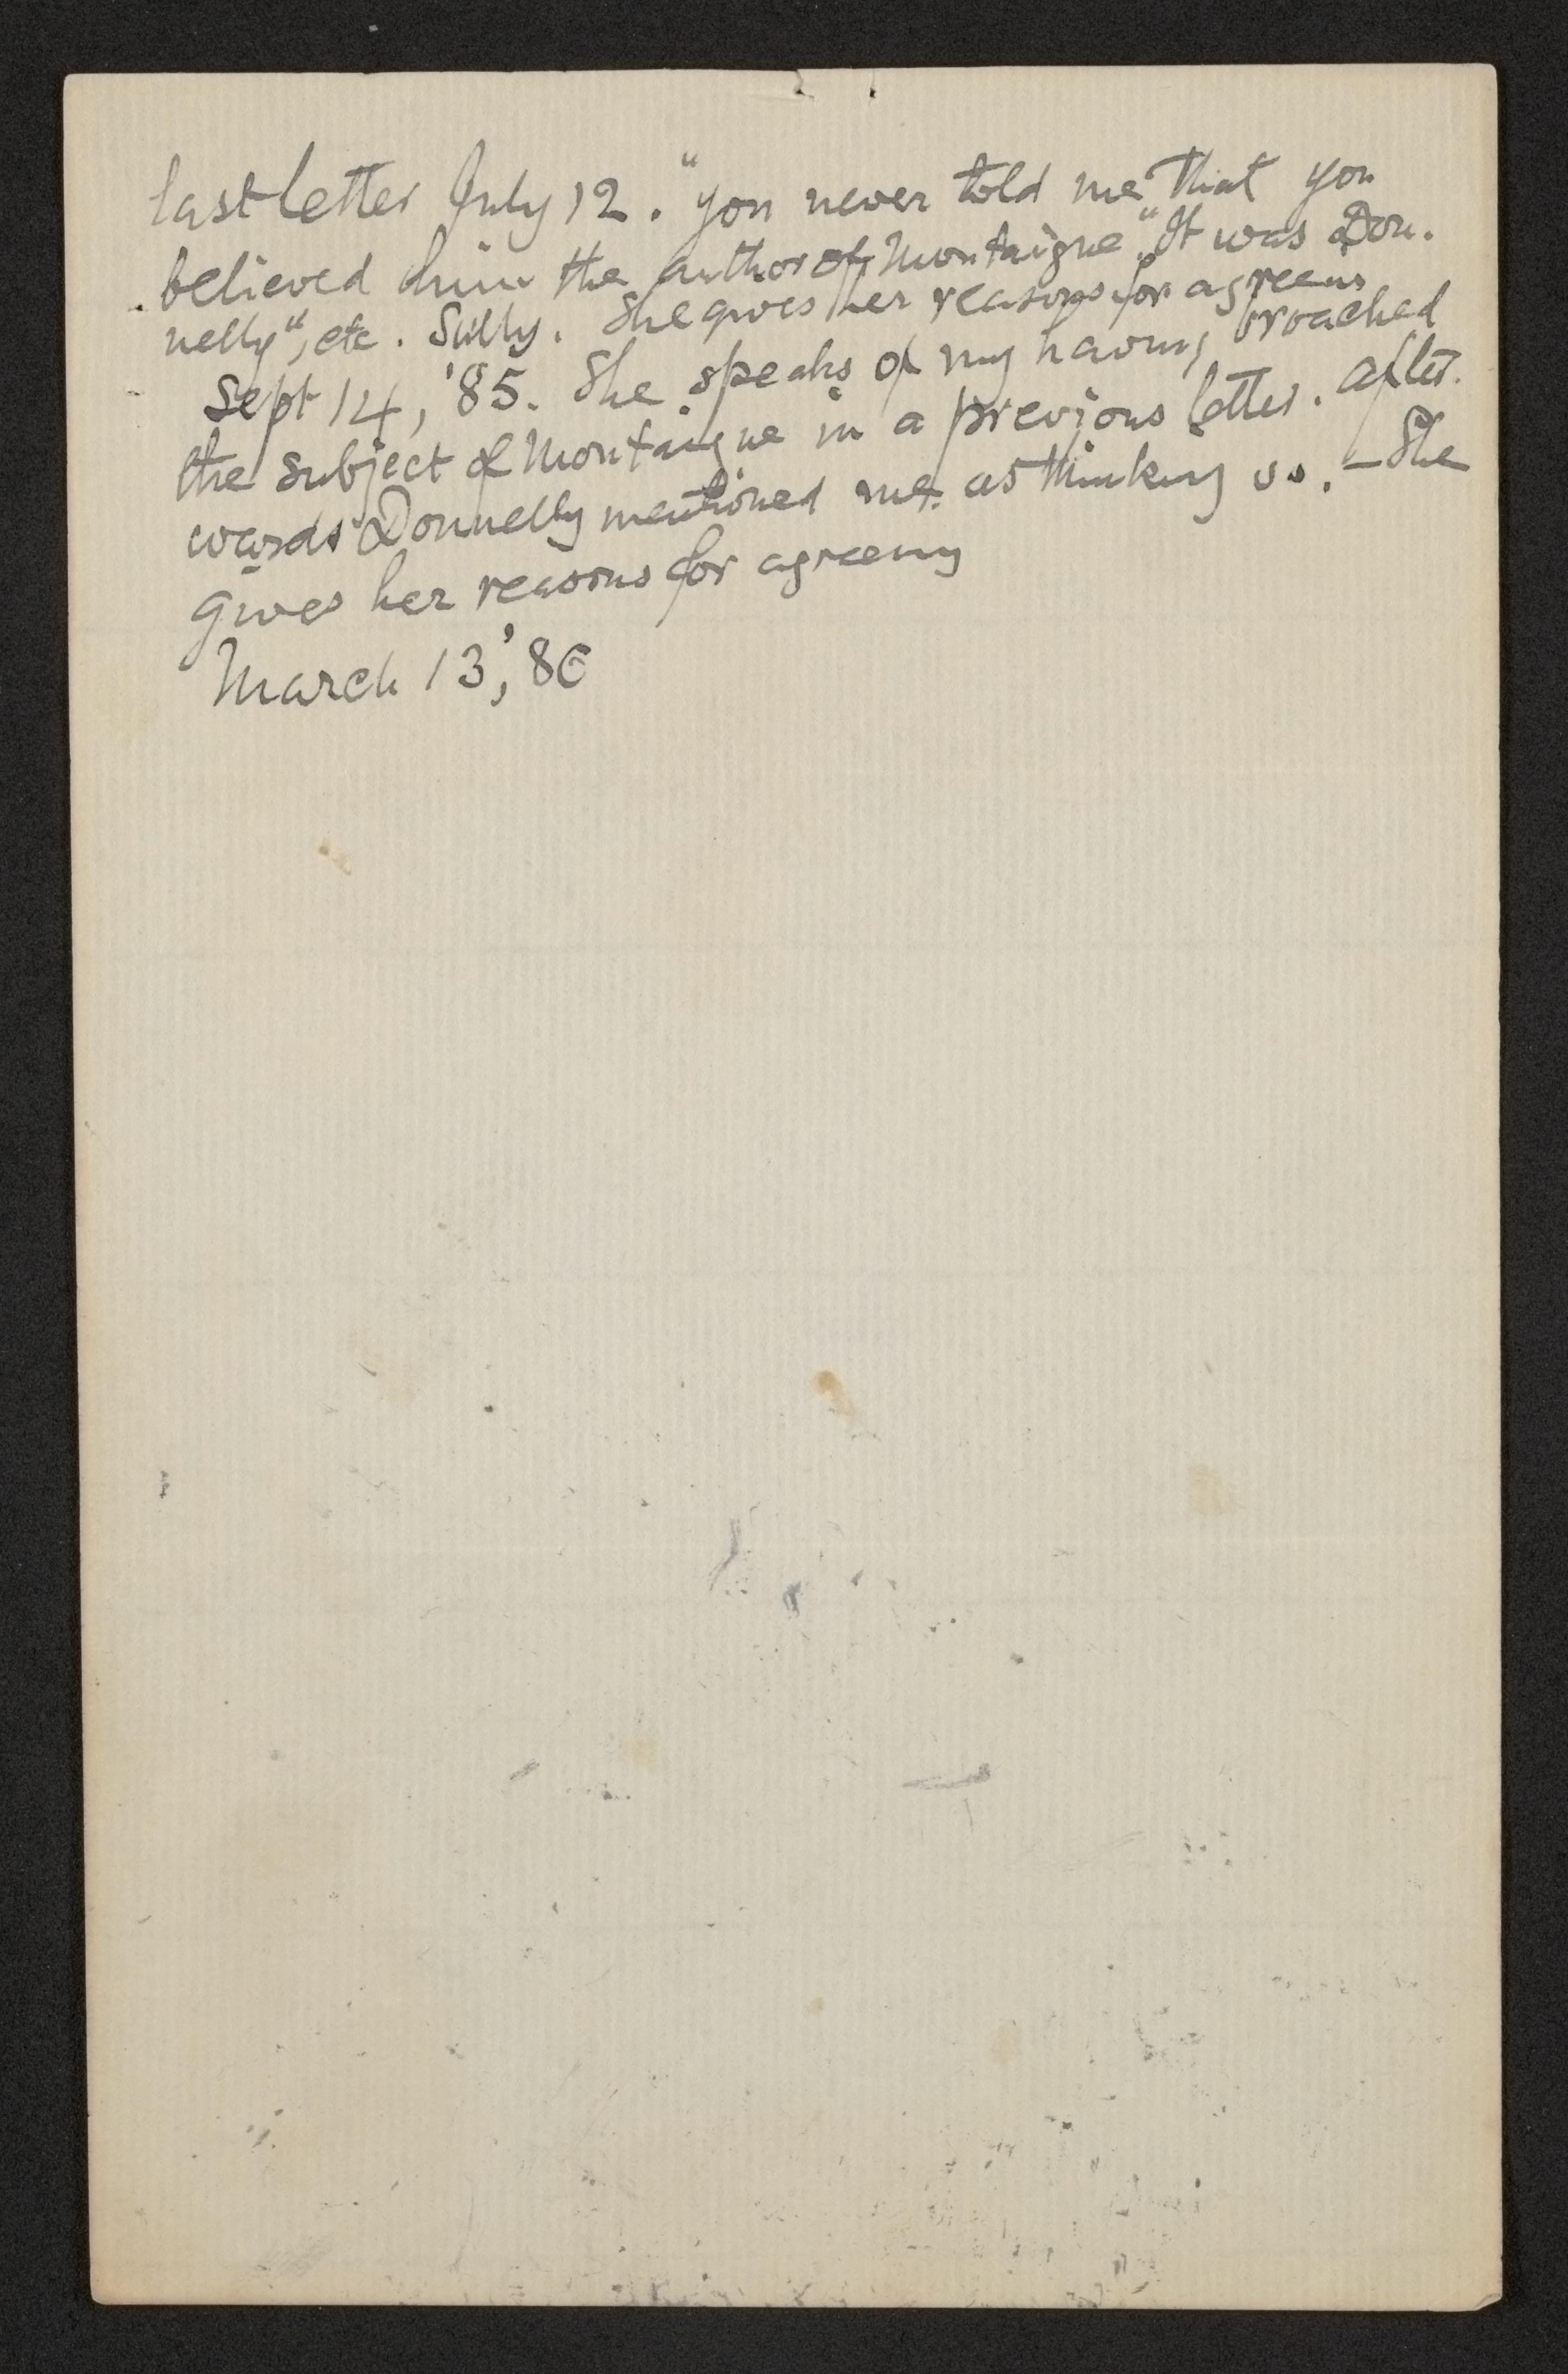 last letter July 12. "you never told me that you
believed him the author of Montaigne" "It was Don.
nelly", etc. Silly. She gives her reasons for agreeing
Sept 14, '85. She speaks of my having broached
the subject of Montaigne in a previous letter. After.
wards Donnelly mentioned me as thinking so. — She
gives her reasons for agreeing
March 13, '86